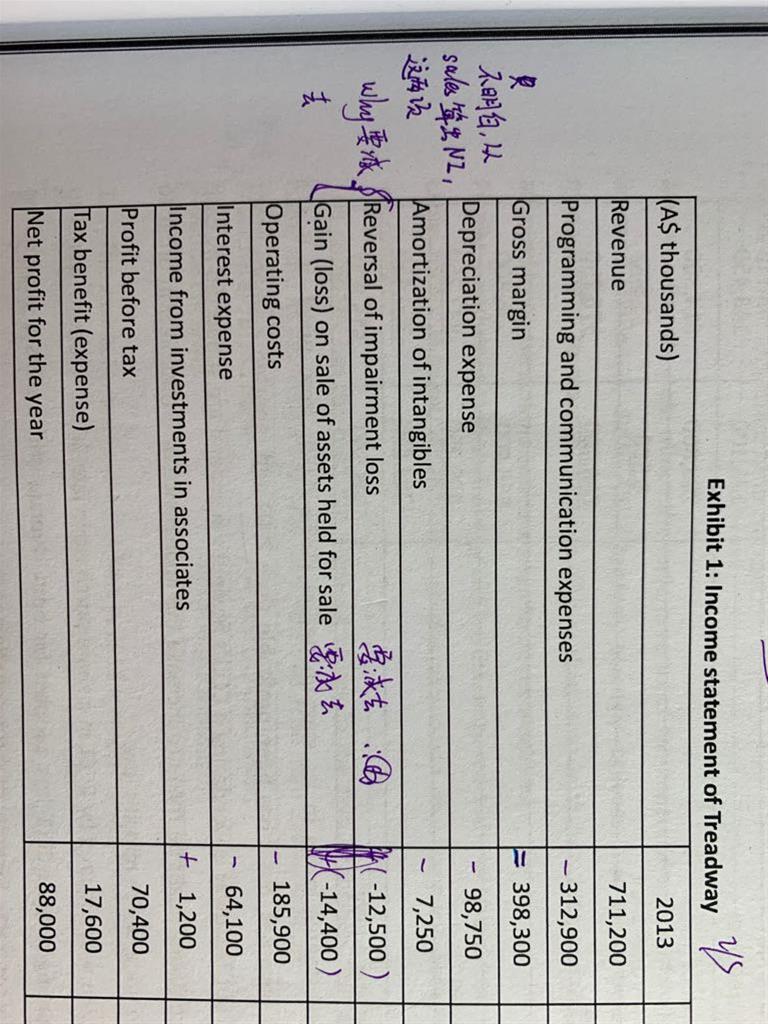 Exhibit 1: Income statement of Treadway
(A$ thousands) 2013
Revenue 711,200
Programming and communication expenses - 312,900
Gross margin = 398,300
Depreciation expense - 98,750
Amortization of intangibles - 7,250
Reversal of impairment loss 要减去 ( -12,500 )
Gain (loss) on sale of assets held for sale 要减去 ( -14,400 )
Operating costs - 185,900
Interest expense - 64,100
Income from investments in associates + 1,200
Profit before tax 70,400
Tax benefit (expense) 17,600
Net profit for the year 88,000
不明白,从
sales 算出 NI,
这两项
why 要减
去